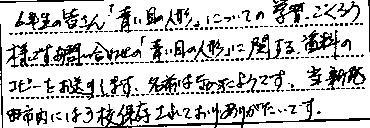 6年生の皆さん「青い目の人形」についての学習、ごくろう
様です。お問い合わせの「青い目の人形」に関する資料の
コピーをお送りします。名前は なようです。当新発
田市内には3枚保存されておりありがたいです。